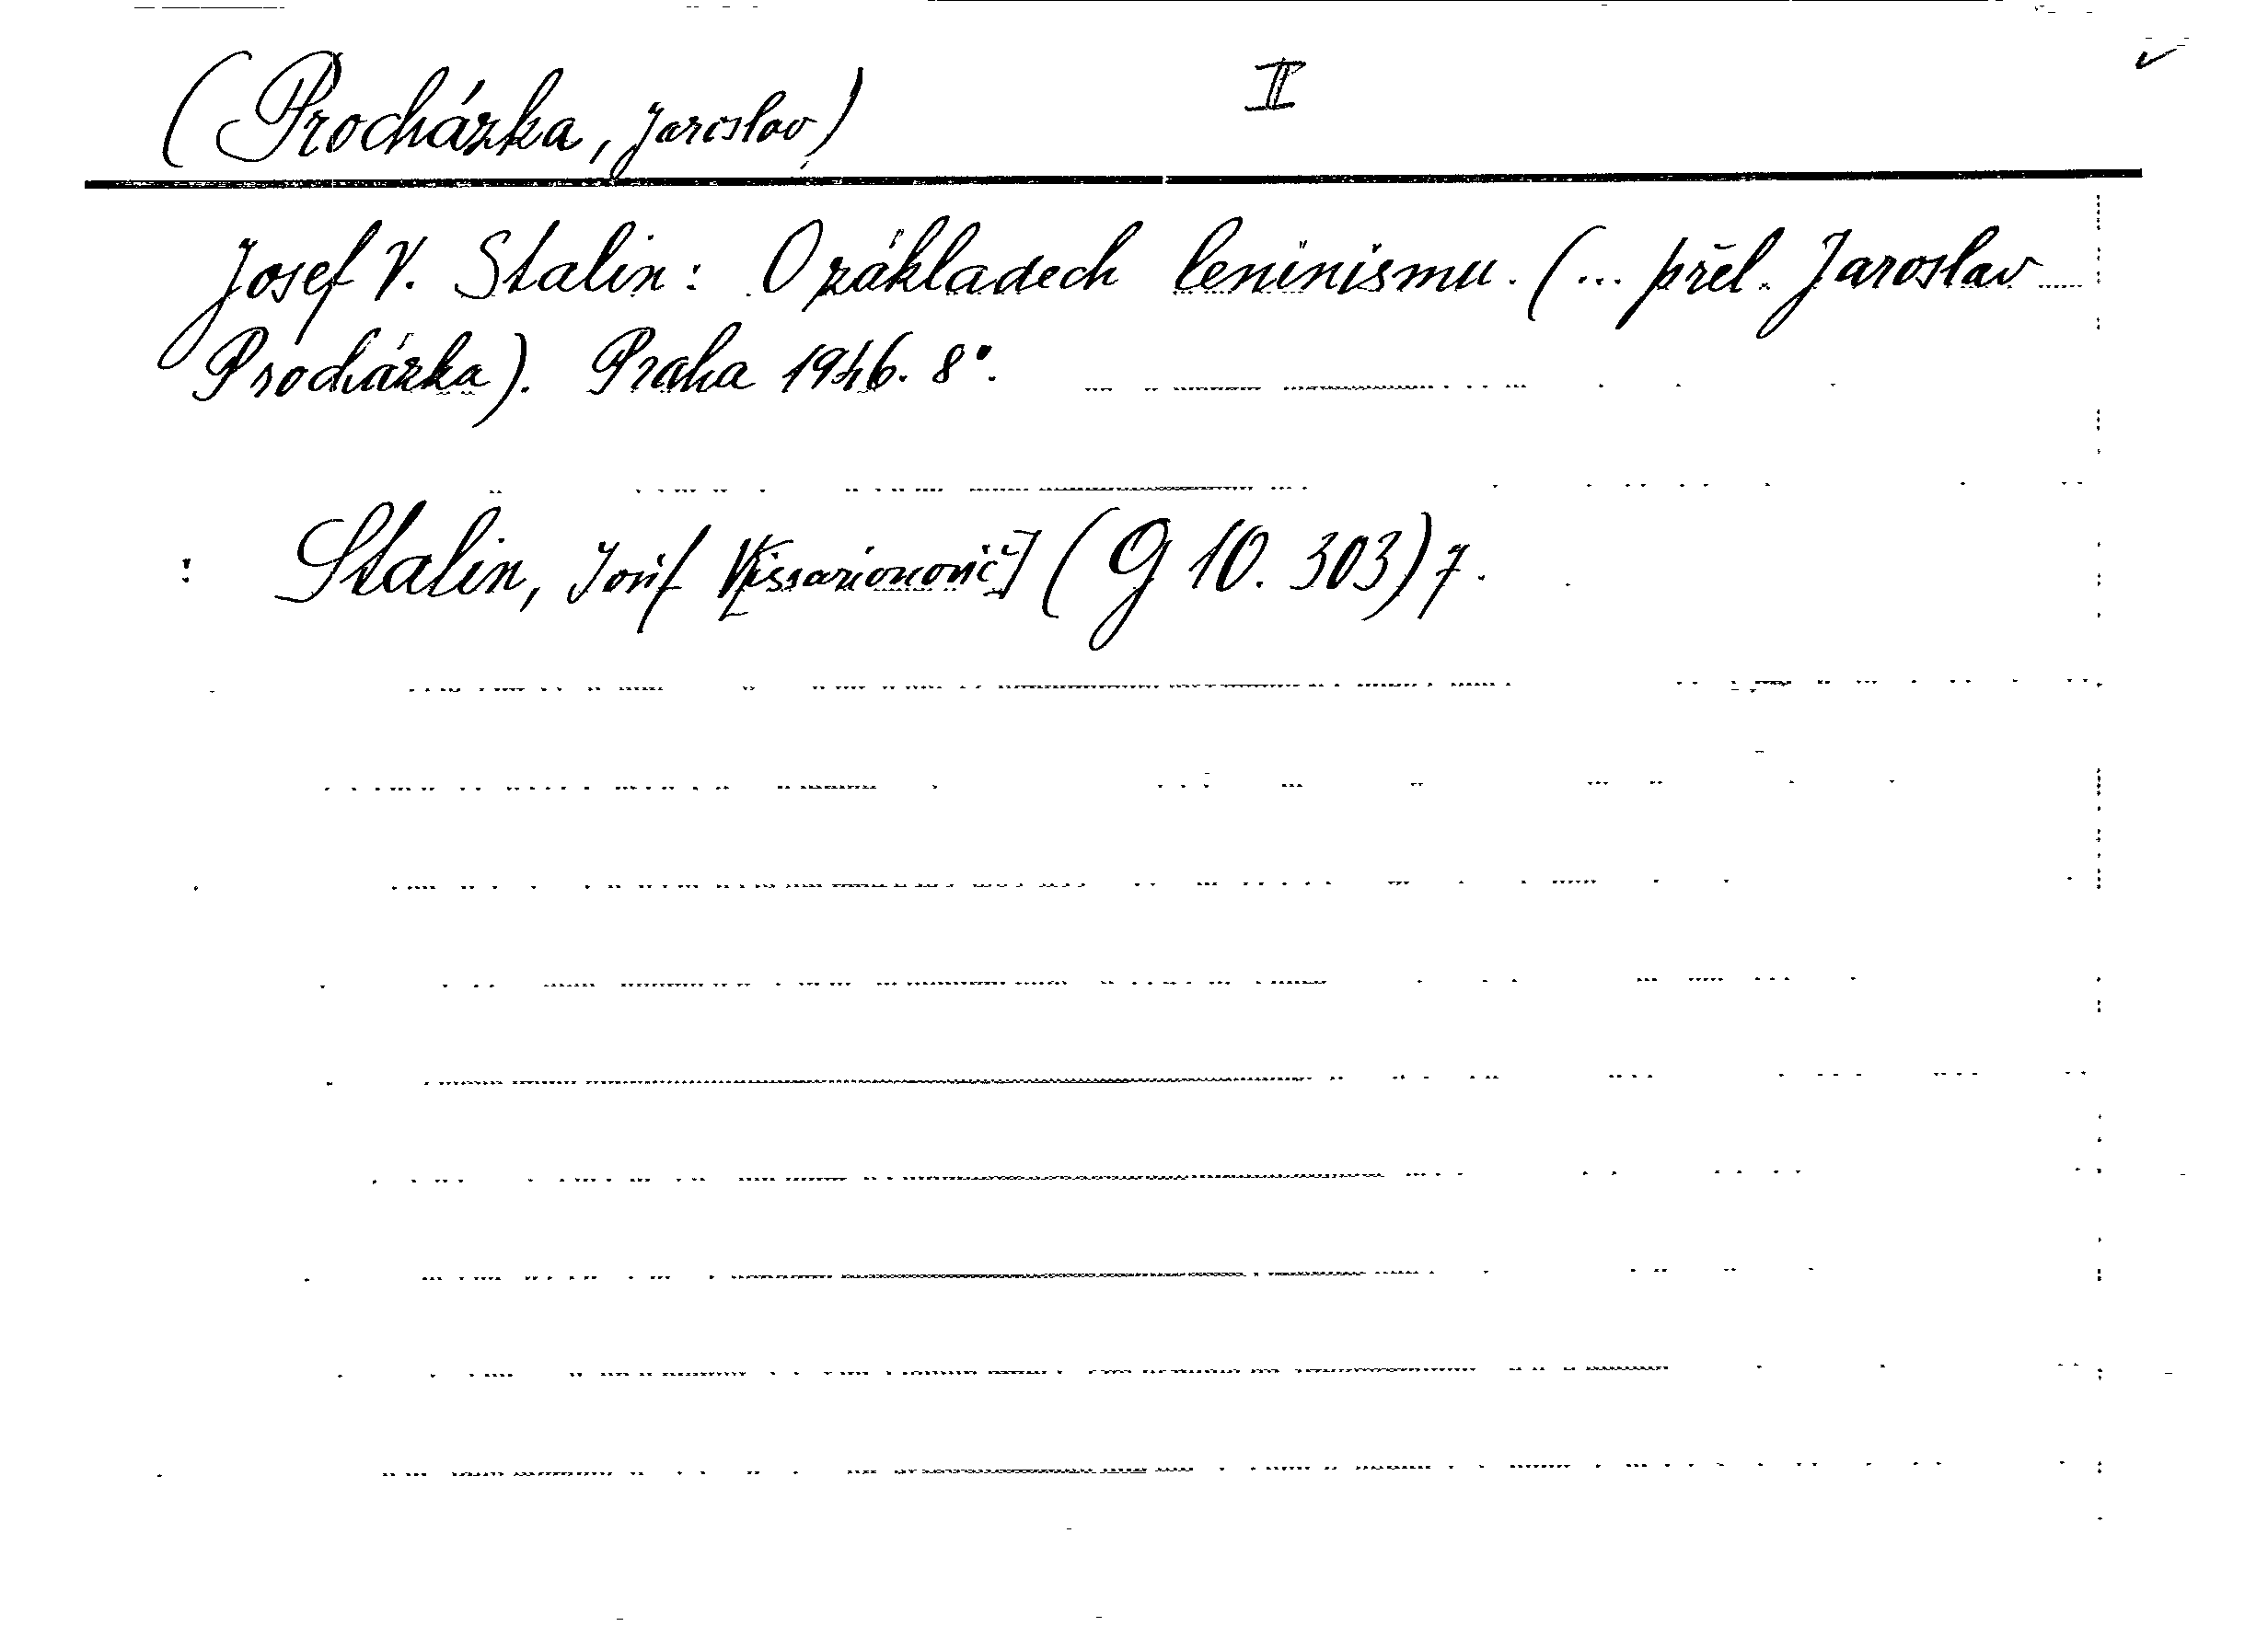 (Procházka, Jaroslav) II
Josef V. Stalin: O základech leninismu. (... přel. Jaroslav
Procházka). Praha 1946. 8°.
: Stalin, Josif V[issarionovič] (G 10. 303) 7.